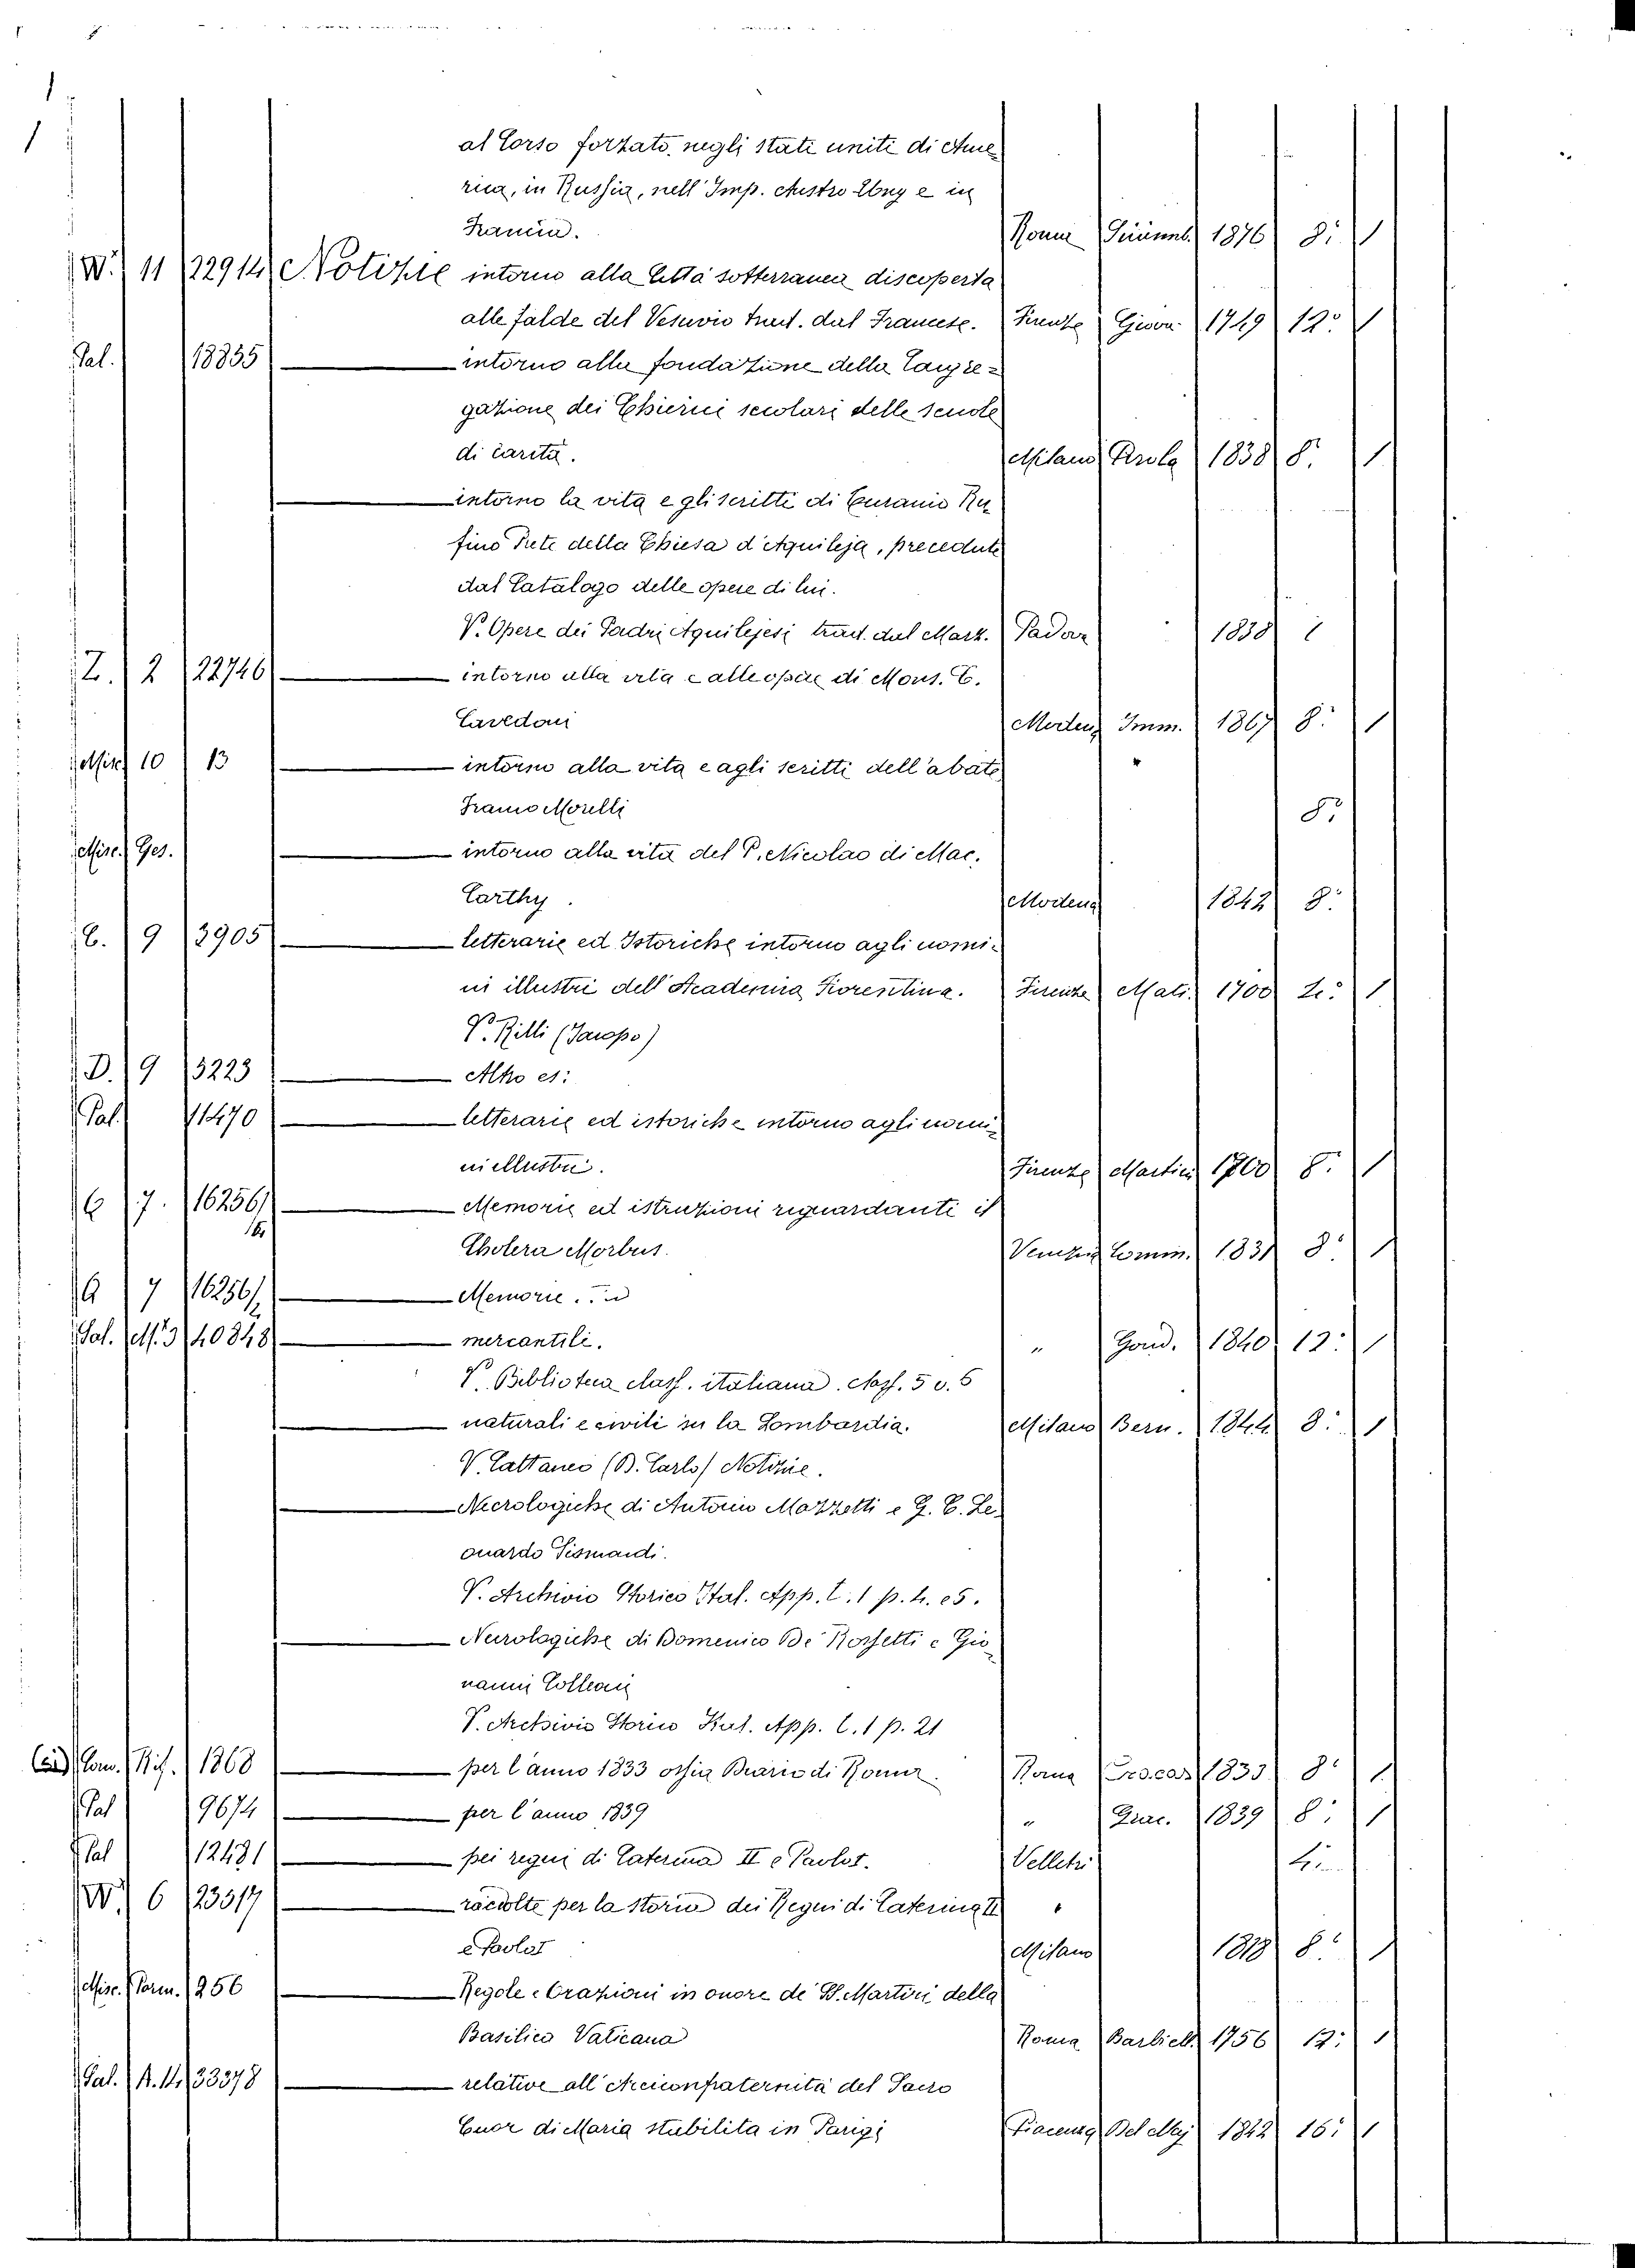 al Corso forzato, negli stati uniti di Ame
rica, in Russia, nell' Imp. Austro Ung e in
Francia. Roma 1876 8: 1
W. 11 22914 Notizie intorno alla Città sotterranea discoperta
alle falde del Vesuvio trad. dal Francese. Firenze Giovan. 1749 12: 1
Pal. 18835 — intorno alla fondazione della Congre=
gazione dei Chierici secolari delle scuole
di carità. Milano Pirola 1838 8. 1
— intorno la vita e gli scritti di Turanio Ru
fino Prete della Chiesa d'Aquileja, precedute
dal Catalogo delle opere di lui.
V. Opere dei Padri Aquilejesi trad. dal Marz. Padova 1838
Z. 2 22746 — intorno alla vita e alle opere di Mons. C.
Cavedoni Modena Imm. 1867 8: 1
Misc. 10 13 — intorno alla vita e agli scritti dell'abate
Franco Morelli 8:
Misc. Ges. — intorno alla vita del P. Nicolao di Mac.
Carthy. Modena 1842 8:
C. 9 3905 — letterarie ed Istoriche intorno agli uomi-
ni illustri dell' Academia Fiorentina. Firenze Mati. 1700 4: 1
V. Rilli (Jacopo)
D. 9 5223 — Altro es:
Pal. 11470 — letterarie ed istoriche intorno agli uomi-
ni illustri. Firenze Martini 1700 8. 1
C 7. 16256/ — Memorie ed istruzioni riguardanti il
Cholera Morbus. Venezia Comm. 1831 8: 1
C 7 16256/ — Memorie
Pal. M. 3 40848 — mercantili. " Gond. 1840 12: 1
V. Biblioteca class. italiana. Class. 5 v. 6
— naturali e civili su la Lombardia. Milano Bern. 1844 8: 1
V. Cattaneo (B. Carlo) Notizie.
— Necrologiche di Antonio Mazzetti e G. C. Le
onardo Sismondi.
V. Archivio Storico Ital. App. t. 1 p. 4. e 5.
— Necrologiche di Domenico De' Rossetti e Gio
vanni
V. Archivio Storico Ital. App. t. 1 p. 21
Com. Rif. 1868 — per l'anno 1833 ossia Diario di Roma. Roma 1833 8: 1
Pal 9674 — per l'anno 1839 " Grac. 1839 8: 1
Pal 12481 — pei regni di Caterina II e Paolo I. Velletri 4:
W. 6 23517 — raccolte per la storia dei Regni di Caterina II "
e Paolo I Milano 8: 1
Misc. Form. 256 — Regole e Orazioni in onore de' SS. Martiri della
Basilica Vaticana Roma Barbiell. 1756 12: 1
Pal. 33378 — relative all' Arciconfraternità del Sacro
Cuor di Maria stabilita in Parigi Piacenza Del Maj 1842 16: 1